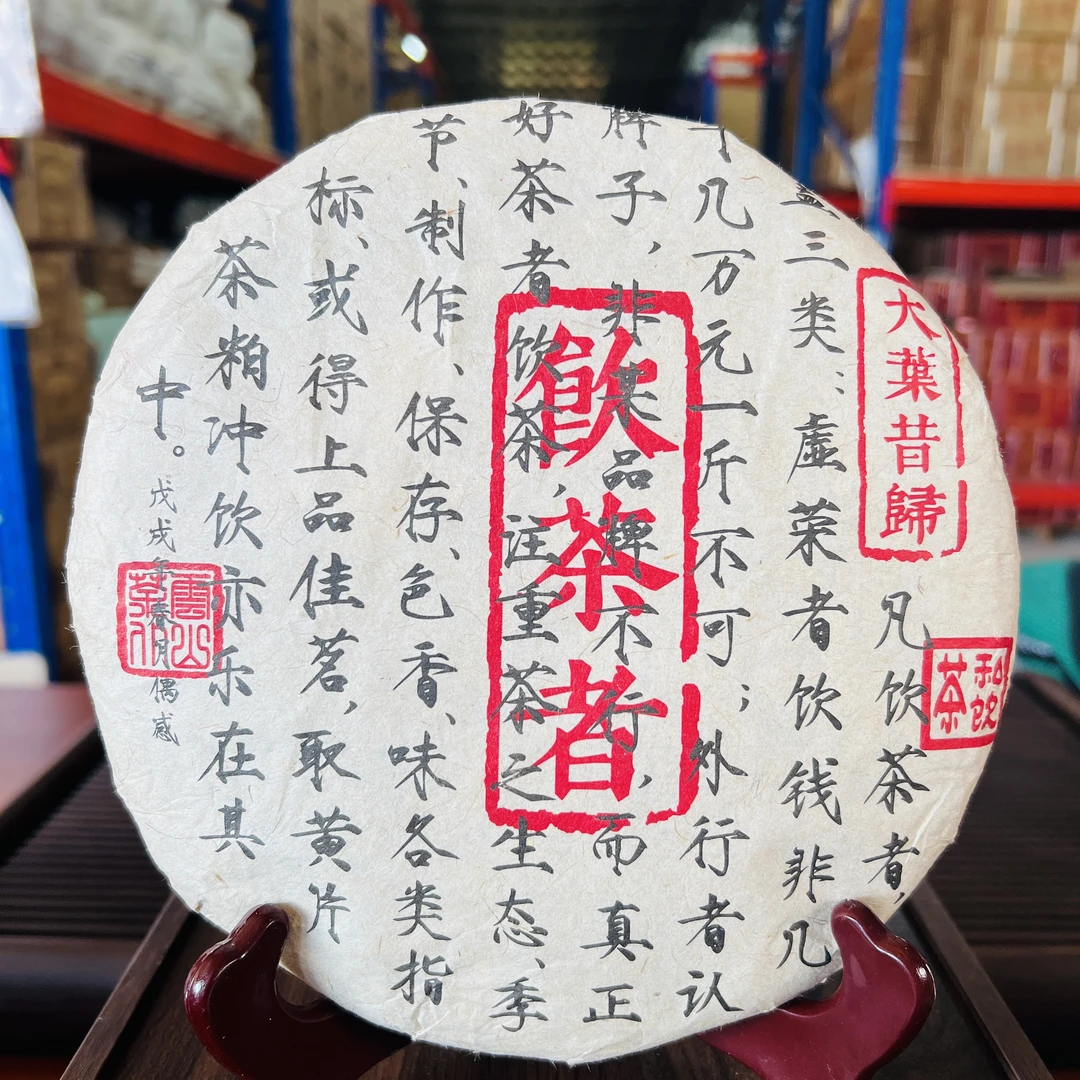 大葉昔歸
凡饮茶者,
盖三类:虚荣者饮钱非几
千几万元一斤不可;外行者认
牌子,非某品牌不行,而真正
好茶者饮茶,注重茶之生态、季
节、制作、保存、色香、味各类指
标、或得上品佳茗,取黄片
茶粕冲饮亦乐在其
中。
戊戌年春月偶感
飲茶者
私悦茶